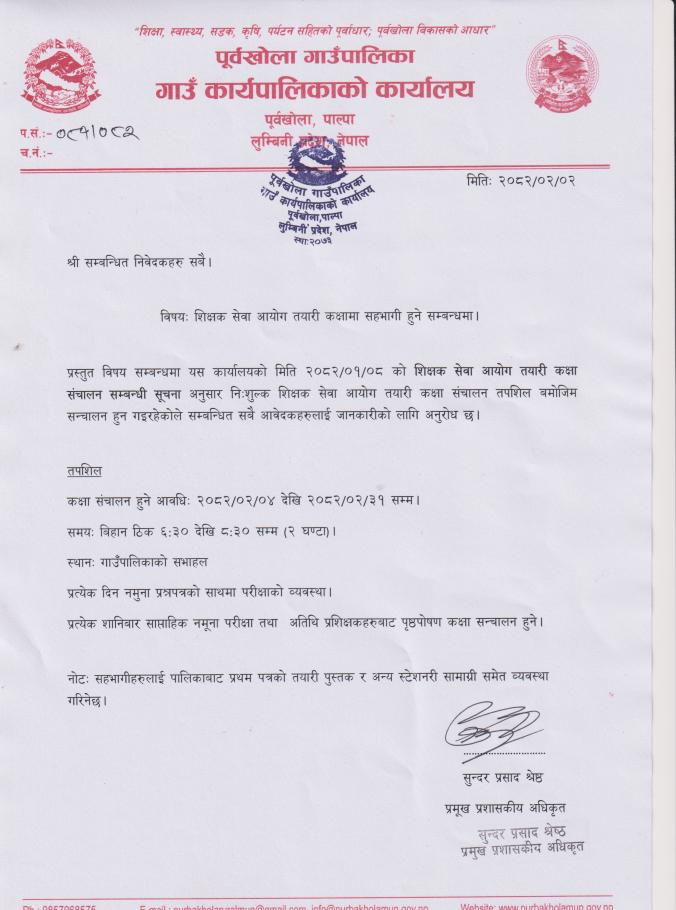 "शिक्षा, स्वास्थ्य, सडक, कृषि, पर्यटन सहितको पूर्वाधार; पूर्वखोला विकासको आधार"
पूर्वखोला गाउँपालिका
गाउँ कार्यपालिकाको कार्यालय
पूर्वखोला, पाल्पा
लुम्बिनी प्रदेश, नेपाल
प.सं.:- ०८१/०८२
च.नं.:-
पूर्वखोला गाउँपालिका
गाउँ कार्यपालिकाको कार्यालय
पूर्वखोला,पाल्पा
लुम्बिनी प्रदेश, नेपाल
स्था:२०७३
मितिः २०८२/०२/०२
श्री सम्बन्धित निवेदकहरु सबै।
विषयः शिक्षक सेवा आयोग तयारी कक्षामा सहभागी हुने सम्बन्धमा।
प्रस्तुत विषय सम्बन्धमा यस कार्यालयको मिति २०८२/०१/०८ को शिक्षक सेवा आयोग तयारी कक्षा
संचालन सम्बन्धी सूचना अनुसार निःशुल्क शिक्षक सेवा आयोग तयारी कक्षा संचालन तपशिल बमोजिम
सन्चालन हुन गइरहेकोले सम्बन्धित सबै आवेदकहरुलाई जानकारीको लागि अनुरोध छ।
तपशिल
कक्षा संचालन हुने आवधिः २०८२/०२/०४ देखि २०८२/०२/३१ सम्म।
समयः बिहान ठिक ६:३० देखि ८:३० सम्म (२ घण्टा)।
स्थानः गाउँपालिकाको सभाहल
प्रत्येक दिन नमुना प्रश्नपत्रको साथमा परीक्षाको व्यवस्था।
प्रत्येक शानिबार साप्ताहिक नमूना परीक्षा तथा अतिथि प्रशिक्षकहरुबाट पृष्ठपोषण कक्षा सन्चालन हुने।
नोटः सहभागीहरुलाई पालिकाबाट प्रथम पत्रको तयारी पुस्तक र अन्य स्टेशनरी सामाग्री समेत व्यवस्था
गरिनेछ।
सुन्दर प्रसाद श्रेष्ठ
प्रमूख प्रशासकीय अधिकृत
सुन्दर प्रसाद श्रेष्ठ
प्रमुख प्रशासकीय अधिकृत
Ph.: 9857068575 E-mail : purbakholaruralmun@gmail.com, info@purbakholamun.gov.np Website: www.purbakholamun.gov.np